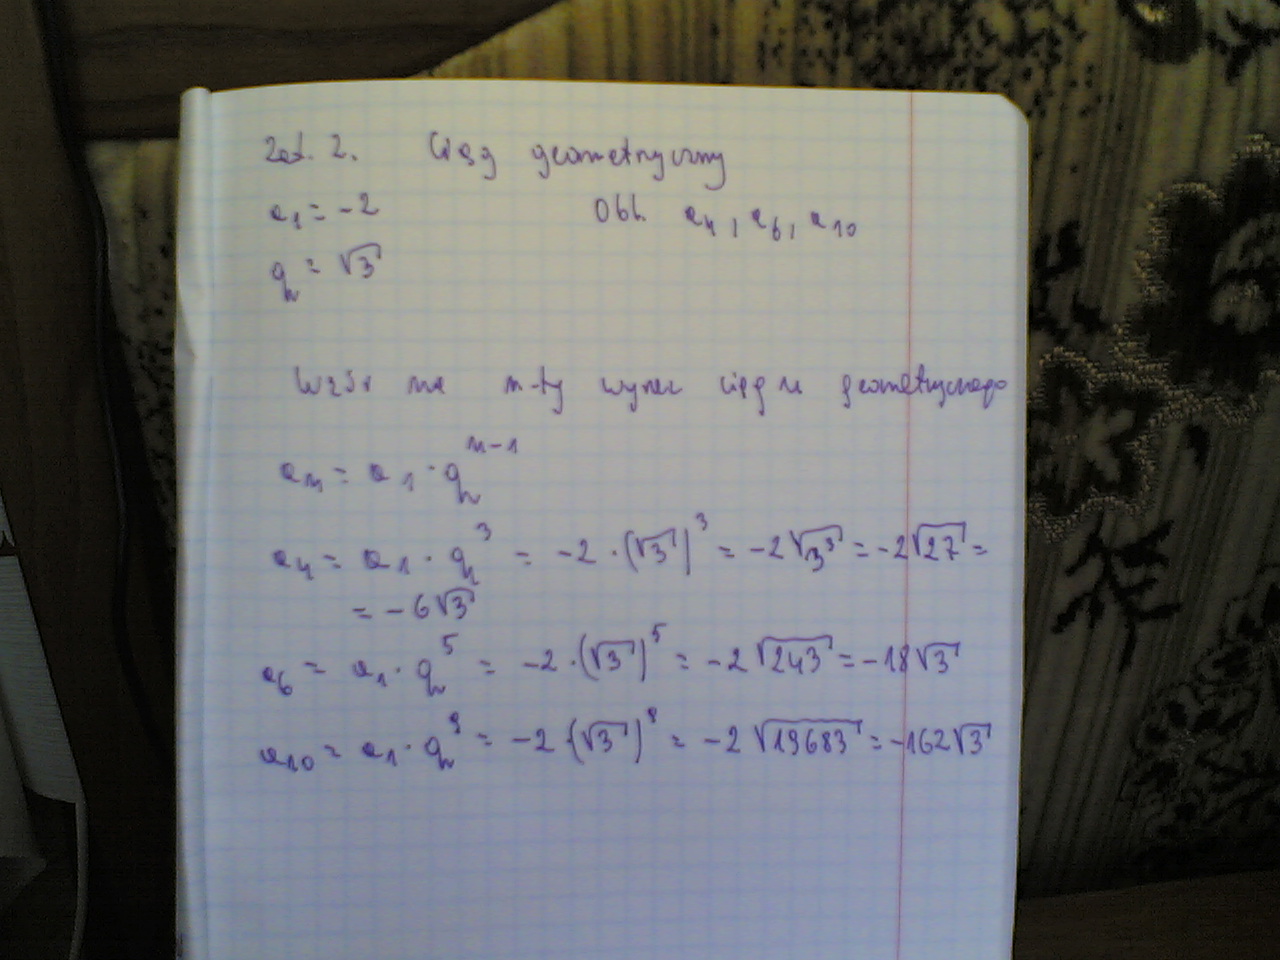 Zad. 2. Ciąg geometryczny
a₁ = -2 Obl. a₄, a₆, a₁₀
q = √3
Wzór na n-ty wyraz ciągu geometrycznego
aₙ = a₁ · qⁿ⁻¹
a₄ = a₁ · q³ = -2 · (√3)³ = -2√3³ = -2√27 =
= -6√3
a₆ = a₁ · q⁵ = -2 · (√3)⁵ = -2√243 = -18√3
a₁₀ = a₁ · q⁹ = -2 · (√3)⁹ = -2√19683 = -162√3